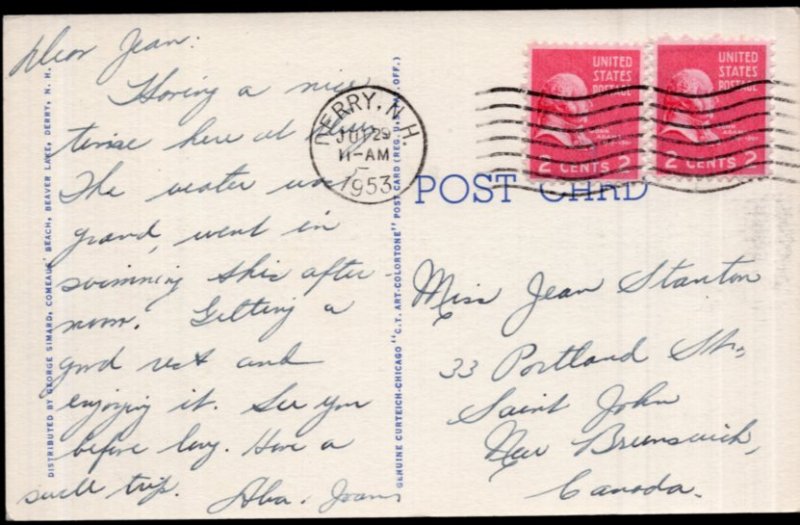 Dear Jean:
Having a nice
time here at
The water was
grand, went in
swimming this after-
noon. Getting a
good rest and
enjoying it. See you
before long. Have a
swell trip.
DERRY, N.H.
JUL 29
11-AM
1953
UNITED
STATES
POSTAGE
JOHN ADAMS
2 CENTS 2
UNITED
STATES
POSTAGE
JOHN ADAMS
2 CENTS 2
POST CARD
Miss Jean Stanton
33 Portland St.,
Saint John
New Brunswick,
Canada.
DISTRIBUTED BY GEORGE SIMARD, COMEAU' BEACH, BEAVER LAKE, DERRY, N. H.
GENUINE CURTEICH-CHICAGO "C. T. ART-COLORTONE" POST CARD (REG. U. S. PAT. OFF.)